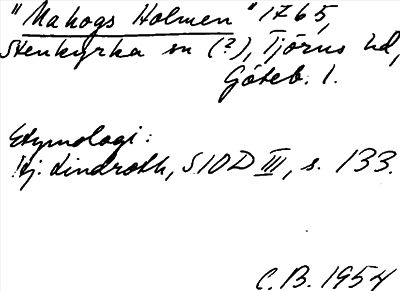 "Makogs Holmen" 1765,
Stenkyrka sn (?), Tjörns hd,
Göteb. l.
Etymologi:
Hj. Lindroth, SIOD III, s. 133.
C.B. 1954